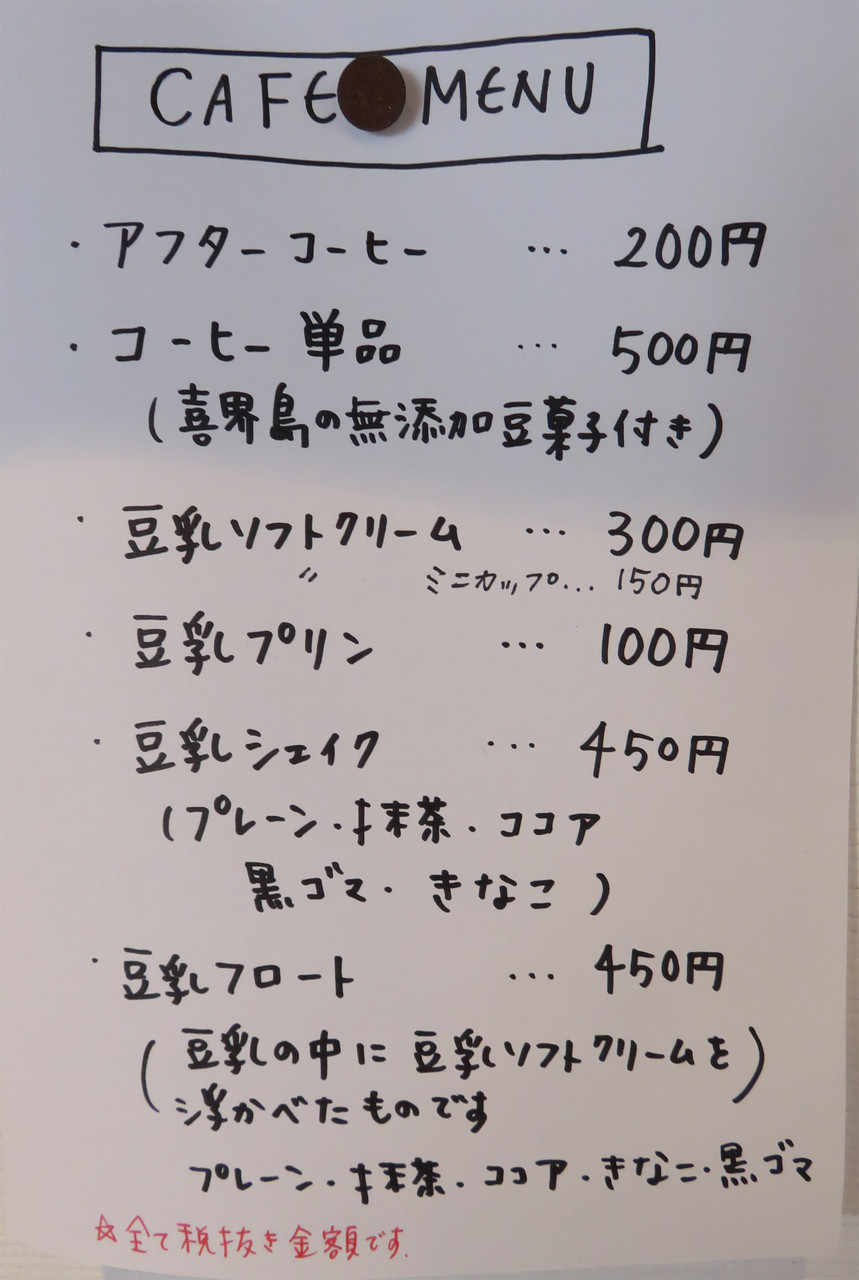 CAFE MENU
・アフターコーヒー … 200円
・コーヒー単品 … 500円
(喜界島の無添加豆菓子付き)
・豆乳ソフトクリーム … 300円
〃 ミニカップ… 150円
・豆乳プリン … 100円
・豆乳シェイク … 450円
(プレーン・抹茶・ココア
黒ゴマ・きなこ)
・豆乳フロート … 450円
(豆乳の中に豆乳ソフトクリームを
浮かべたものです)
プレーン・抹茶・ココア・きなこ・黒ゴマ
☆全て税抜き金額です.